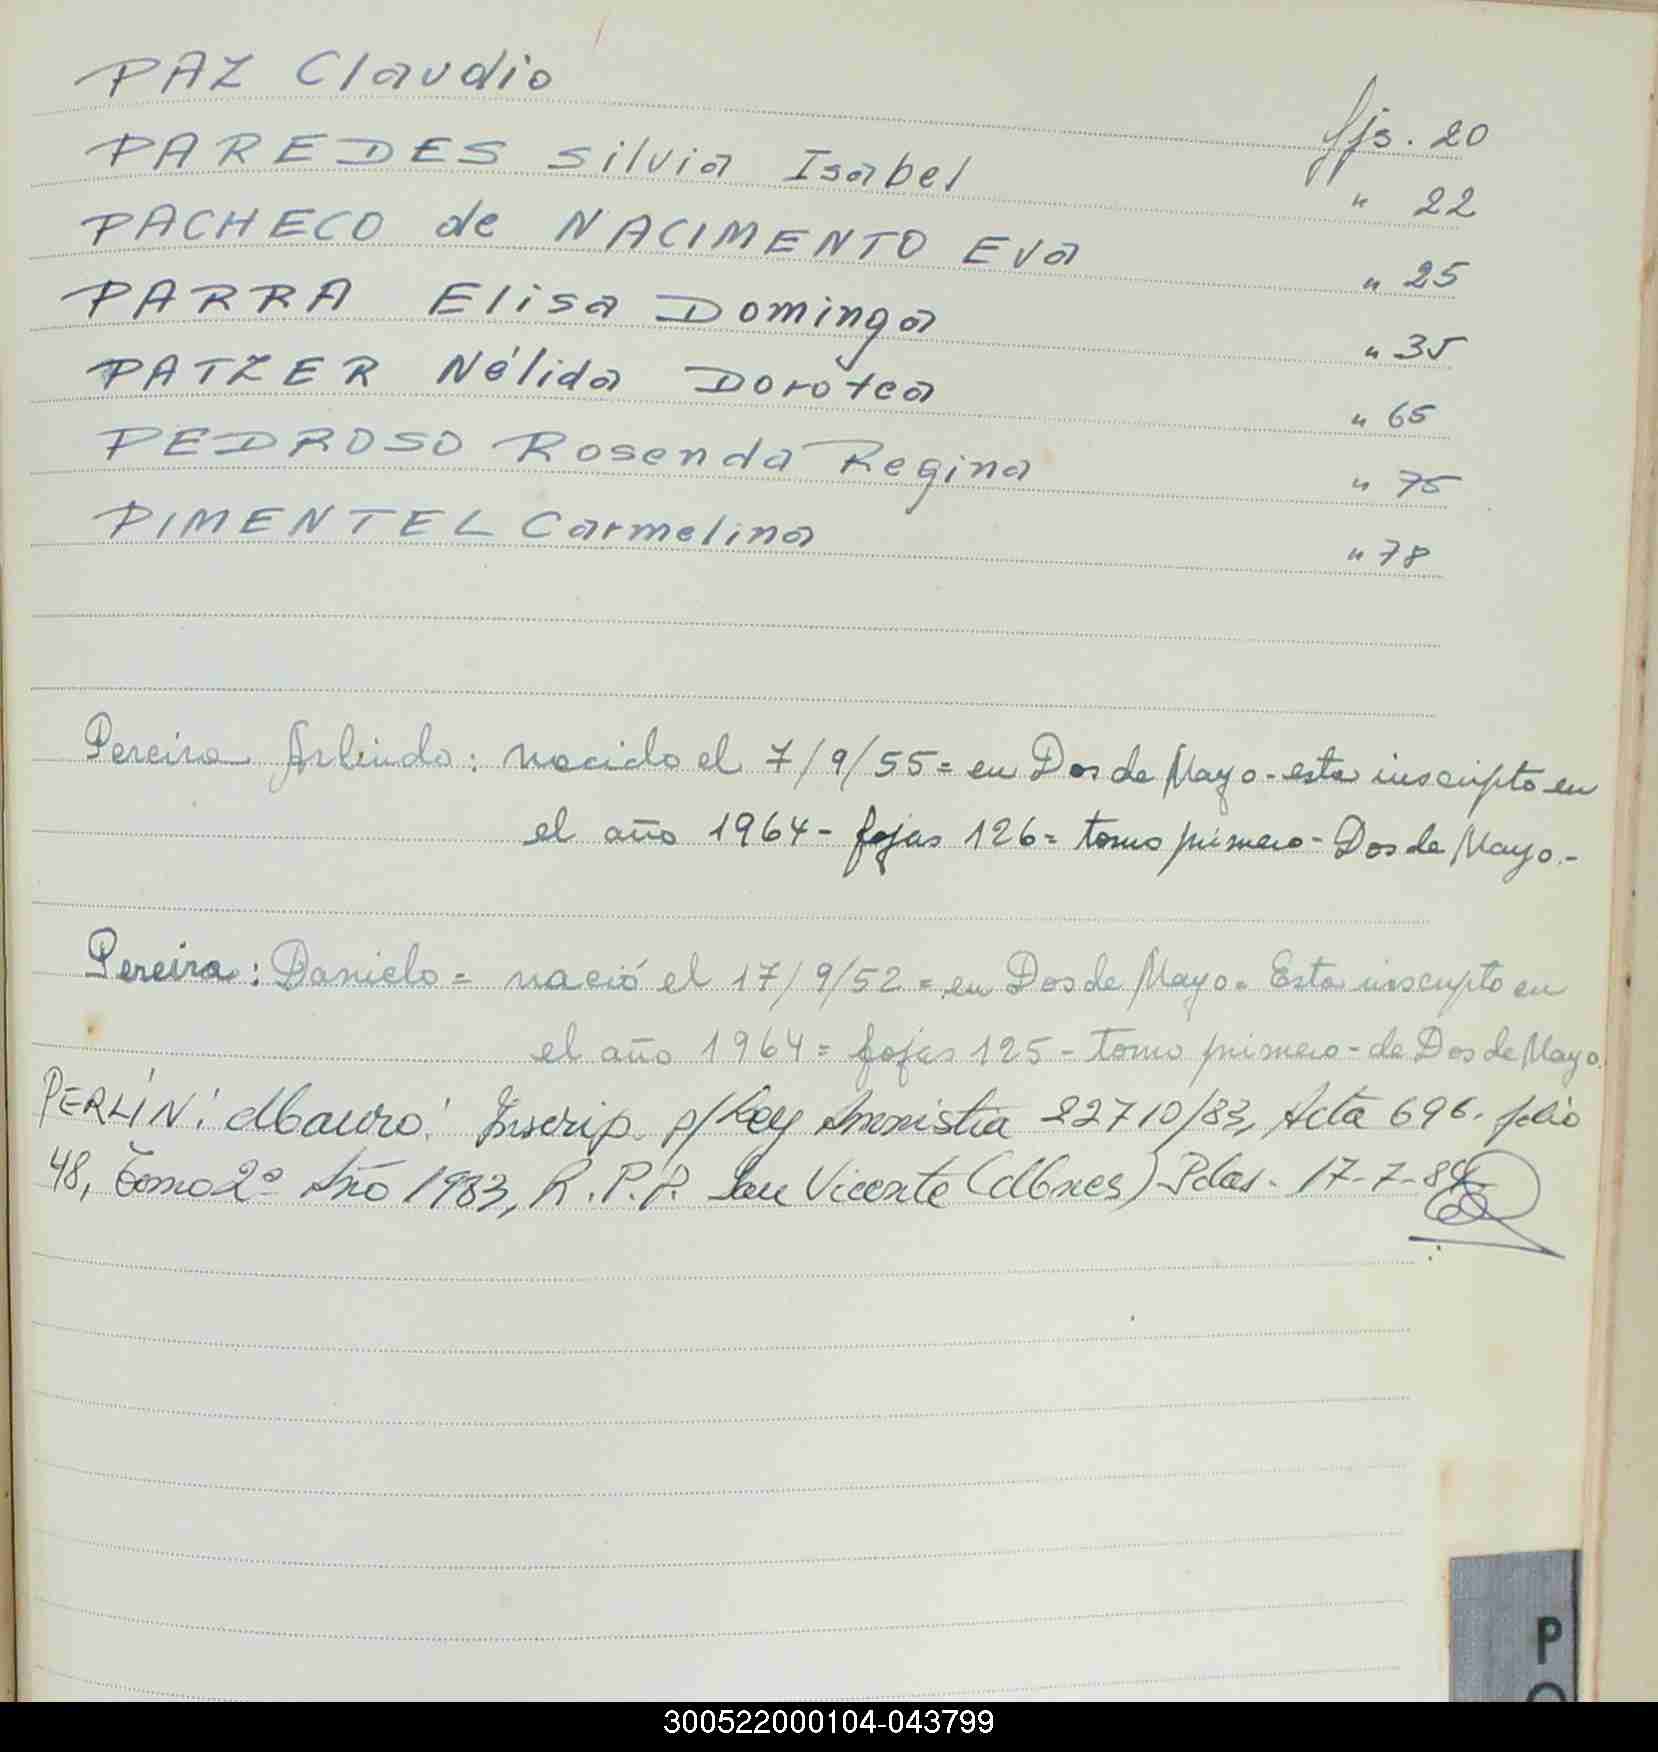 PAZ Claudio fjs. 20
PAREDES Silvia Isabel " 22
PACHECO de NACIMENTO Eva " 25
PARRA Elisa Dominga " 35
PATZER Nélida Dorotea " 65
PEDROSO Rosenda Regina " 75
PIMENTEL Carmelina " 78
Pereira Arlindo: nacido el 7/9/55= en Dos de Mayo- esta inscripto en
el año 1964- fojas 126= tomo primero- Dos de Mayo.-
Pereira: Danielo= nació el 17/9/52= en Dos de Mayo= Esta inscripto en
el año 1964= fojas 125- Tomo primero- de Dos de Mayo.
PERLÍN: Mauro: Inscrip. p/Ley Amnistia 22710/83, Acta 696. folio
48, Tomo 2º Año 1983, R.P.P. San Vicente (Mnes) Pdas- 17-7-84
P
O
300522000104-043799